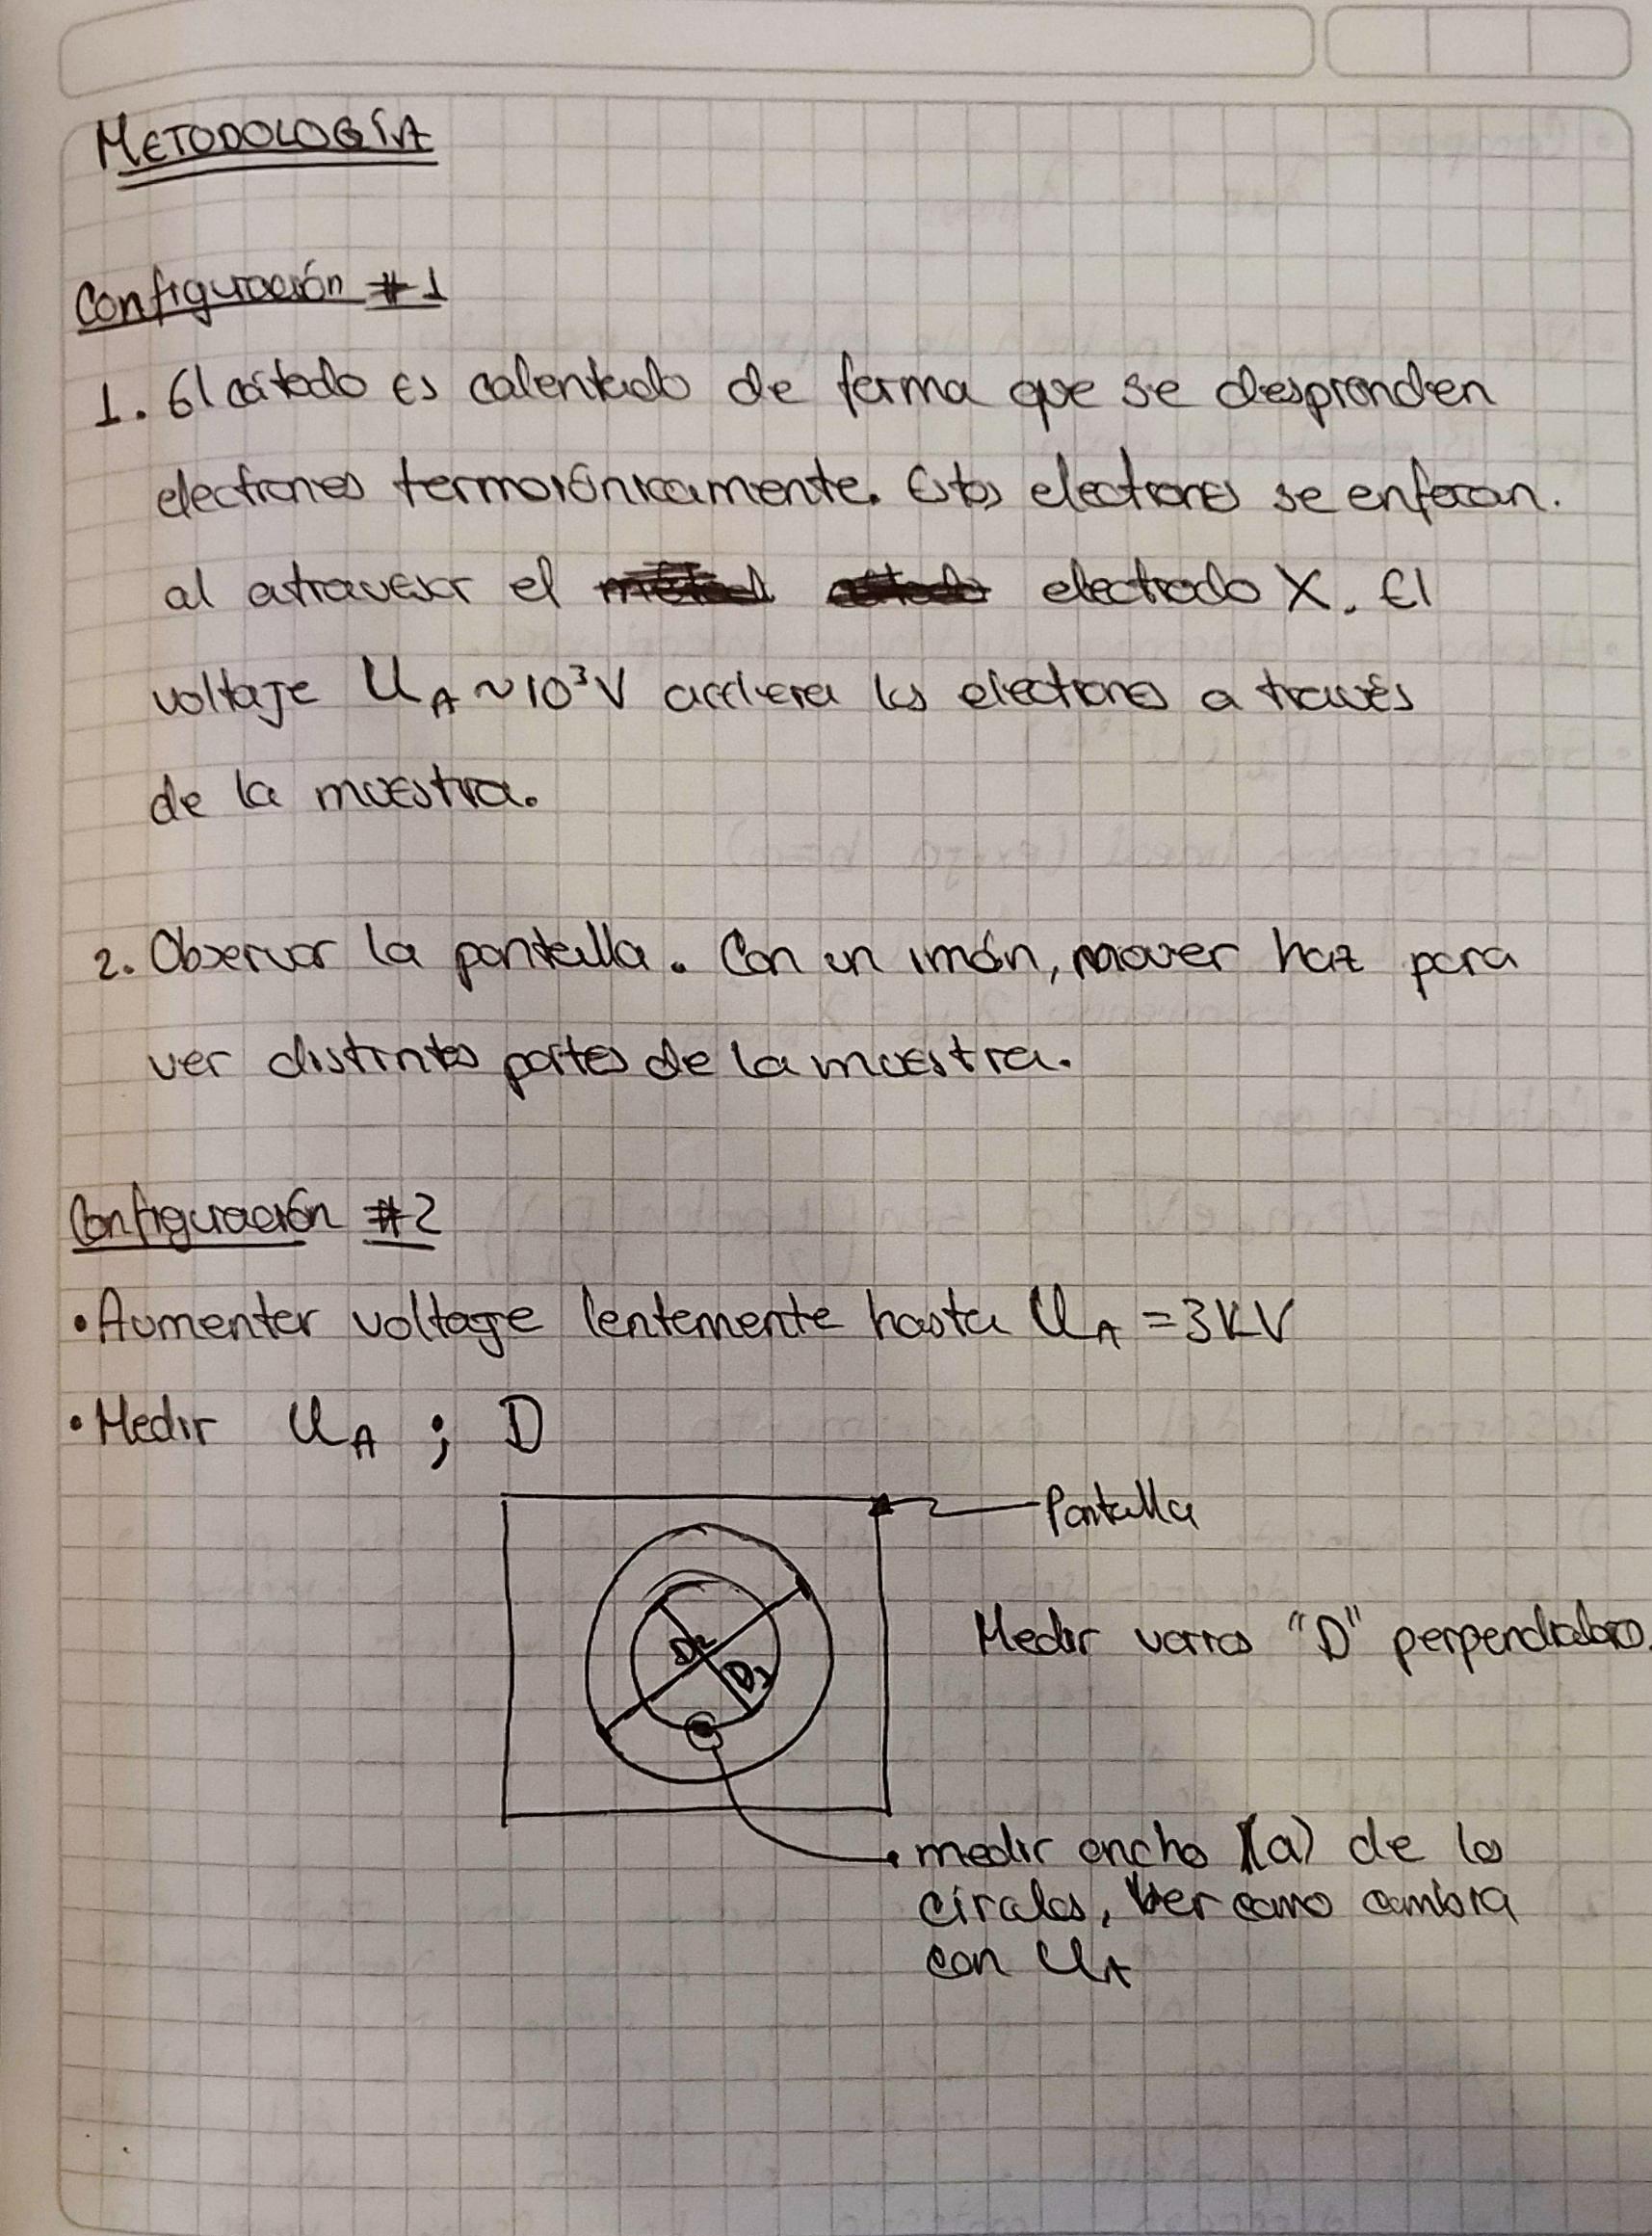 METODOLOGÍA
Configuración #1
1. El cátodo es calentado de forma que se desprenden
electrones termoiónicamente. Estos electrones se enfocan.
al atravesar el electrodo X. El
voltaje U_A ~ 10³V acelera los electrones a través
de la muestra.
2. Observar la pantalla. Con un imán, mover haz para
ver distintas partes de la muestra.
Configuración #2
• Aumentar voltage lentamente hasta U_A = 3KV
• Medir U_A ; D
Pantalla
D2
D1
Medir varios "D" perpendiculares.
• medir ancho (a) de los
círculos, ver como cambia
con U_A